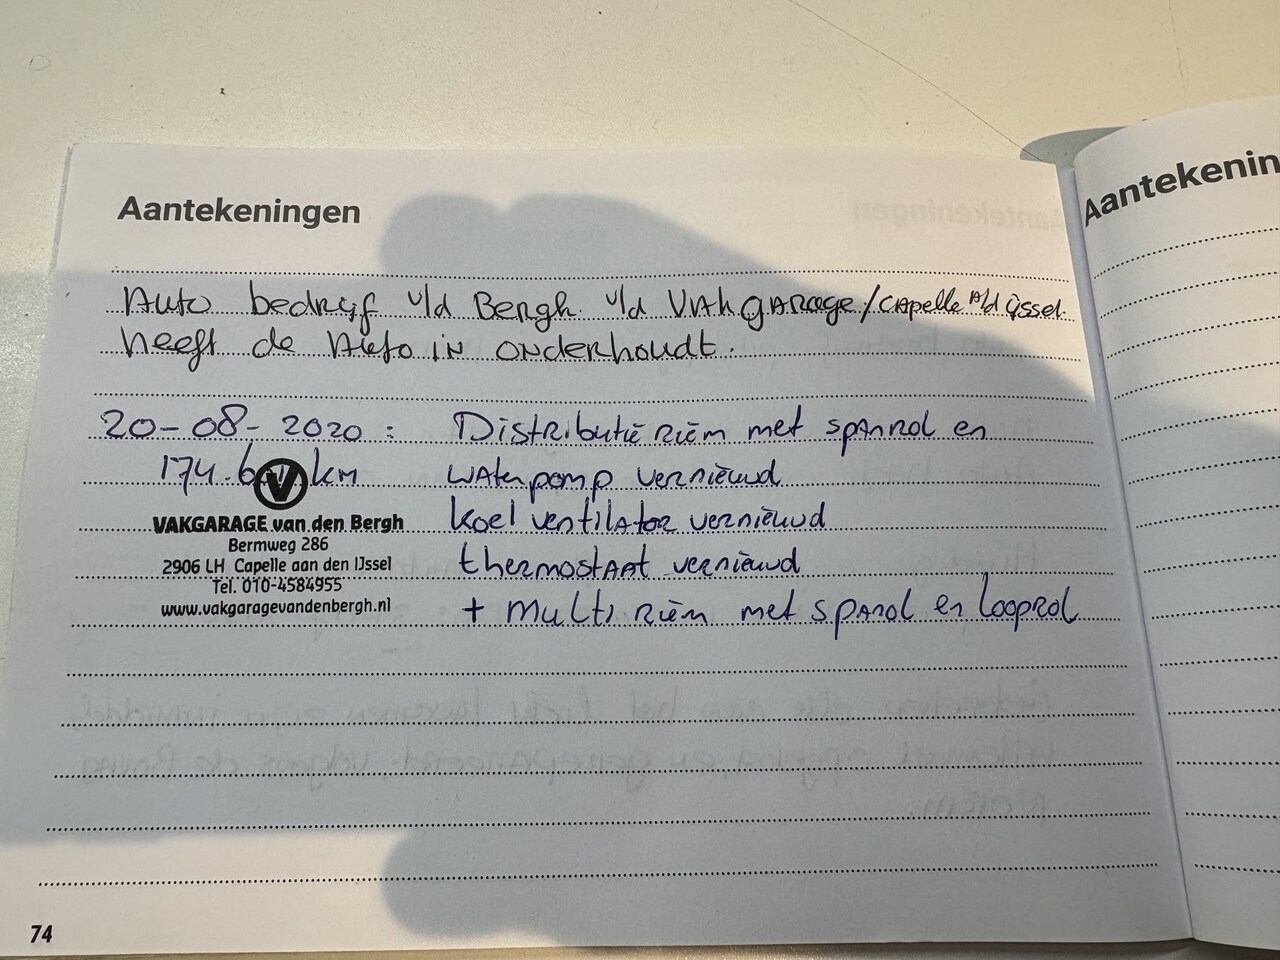 Aantekeningen
Aantekenin
Auto bedrijf v/d Bergh v/d VAkgARage/CApelle A/d ijssel.
heeft de Auto in onderhoudt.
20-08-2020 : Distributie riem met spanrol en
km waterpomp vernieuwd
koel ventilator vernieuwd
thermostaat vernieuwd
+ multi riem met spanrol en looprol
VAKGARAGE van den Bergh
Bermweg 286
2906 LH Capelle aan den IJssel
Tel. 010-4584955
www.vakgaragevandenbergh.nl
74